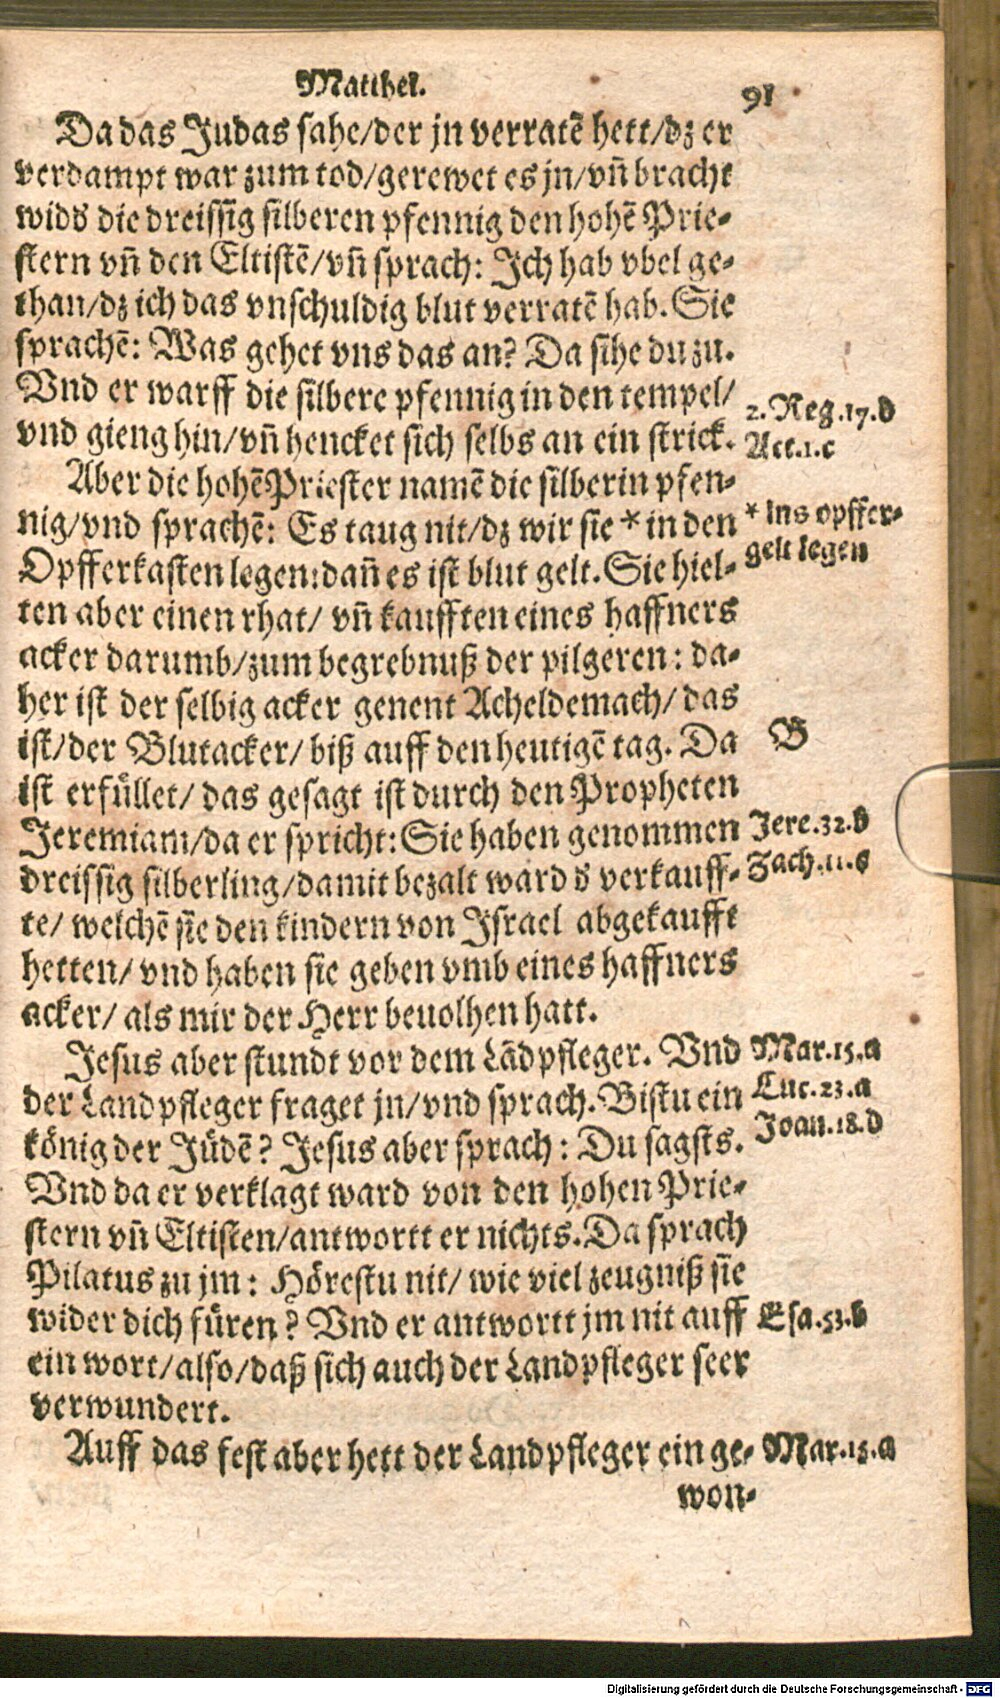 Matthei.
91
Da das Judas sahe/der jn verratē hett/dz er
verdampt war zum tod/gerewet es jn/vñ bracht
widð die dreissig silberen pfennig den hohē Prie-
stern vñ den Eltistē/vñ sprach: Ich hab vbel ge-
than/dz ich das vnschuldig blut verratē hab. Sie
sprachē: Was gehet vns das an? Da sihe du zu.
Vnd er warff die silbere pfennig in den tempel/
2. Reg.17.d
vnd gieng hin/vñ hencket sich selbs an ein strick.
Act.1.c
Aber die hohē Priester namē die silberin pfen-
nig/vnd sprachē: Es taug nit/dz wir sie * in den
* ins opffer-
Opfferkasten legen: dañ es ist blut gelt. Sie hiel-
gelt legen
ten aber einen rhat/ vñ kaufften eines haffners
acker darumb/zum begrebnuß der pilgeren: da-
her ist der selbig acker genent Acheldemach/ das
ist/der Blutacker/ biß auff den heutigē tag. Da
B
ist erfüllet/ das gesagt ist durch den Propheten
Jeremiam/da er spricht: Sie haben genommen
Jere.32.b
dreissig silberling/damit bezalt ward ð verkauff-
Zach.11.c
te/ welchē sie den kindern von Israel abgekaufft
hetten/ vnd haben sie geben vmb eines haffners
acker/ als mir der Herr beuolhen hatt.
Jesus aber stundt vor dem Lādpfleger. Vnd
Mar.15.a
der Landpfleger fraget jn/vnd sprach. Bistu ein
Luc.23.a
könig der Jüdē? Jesus aber sprach: Du sagsts.
Joan.18.d
Vnd da er verklagt ward von den hohen Prie-
stern vñ Eltisten/antwortt er nichts. Da sprach
Pilatus zu jm: Hörestu nit/ wie viel zeugniß sie
wider dich füren? Vnd er antwortt jm nit auff
Esa.53.b
ein wort/also/daß sich auch der Landpfleger seer
verwundert.
Auff das fest aber hett der Landpfleger ein ge-
Mar.15.a
won-
Digitalisierung gefördert durch die Deutsche Forschungsgemeinschaft - DFG